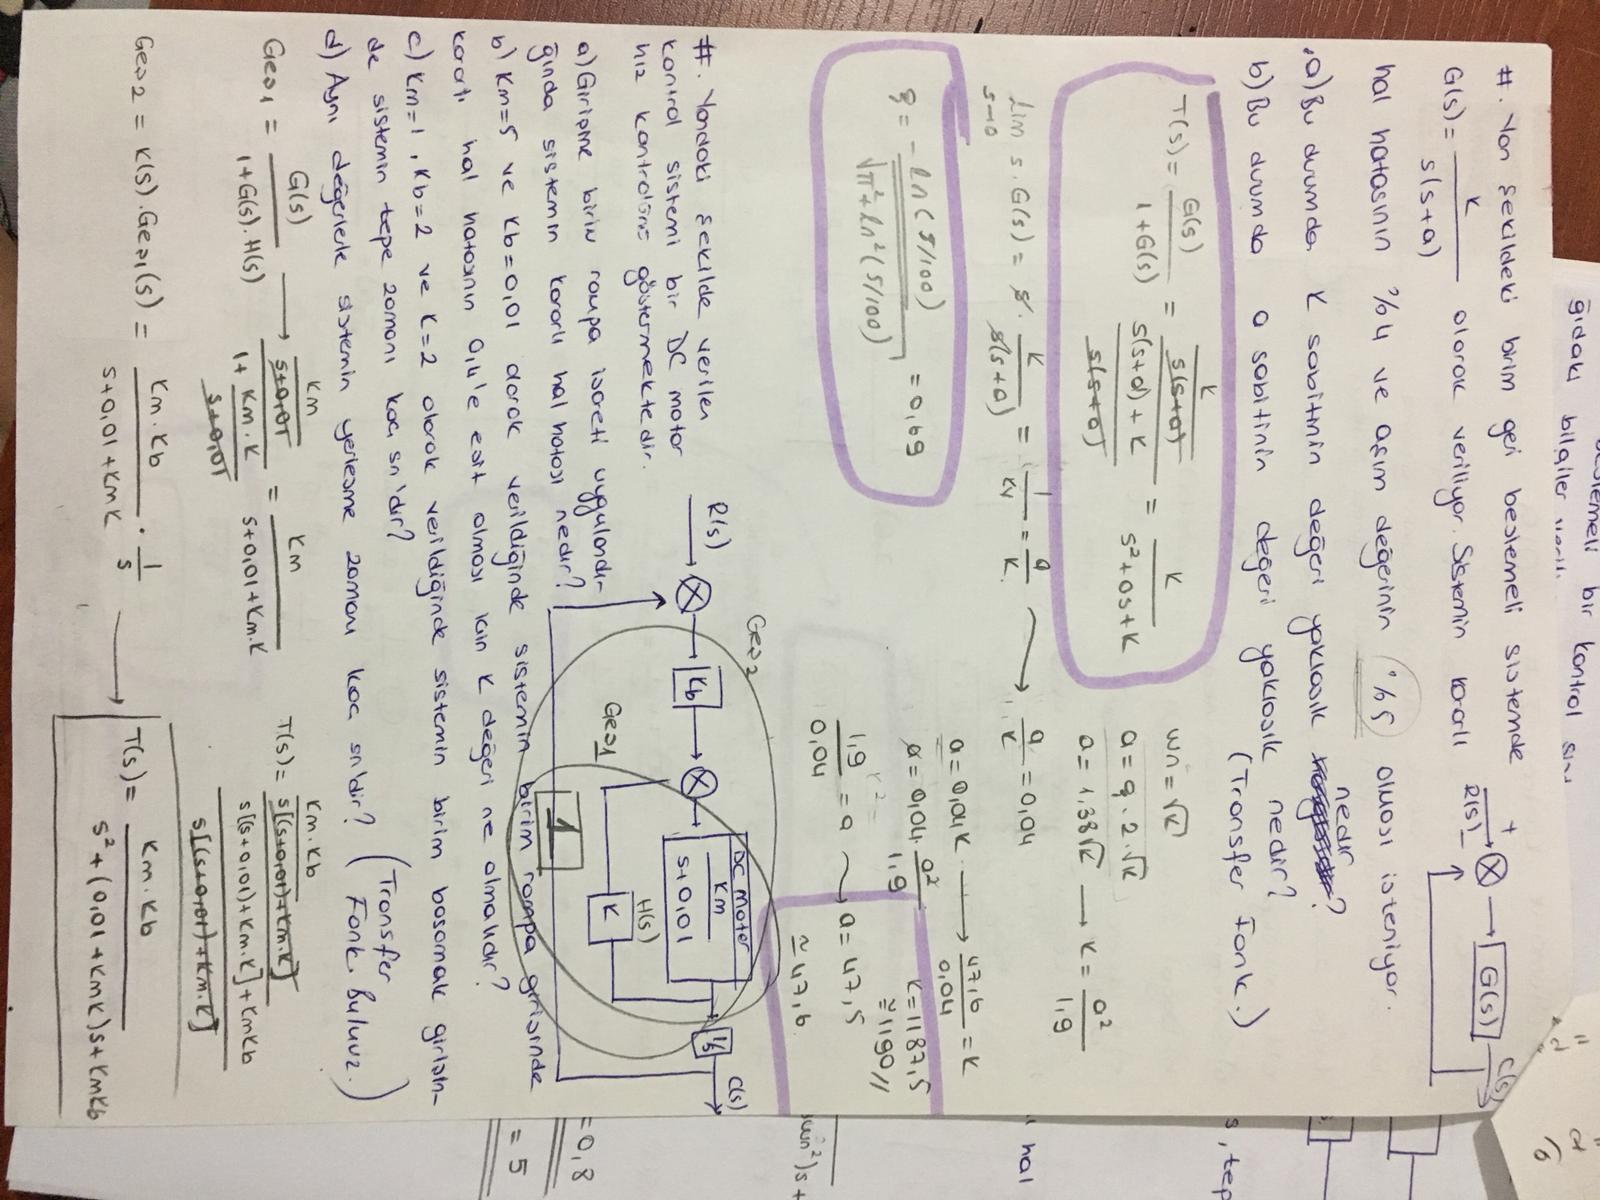 beslemeli bir kontrol
ğıdaki bilgiler
#. Yan şekildeki birim geri beslemeli sistemde
G(s) = K / s(s+a) olarak veriliyor. Sistemin kararlı
R(s) + − G(s) C(s)
hal hatasının %4 ve aşım değerinin %5 olması isteniyor.
a) Bu durumda K sabitinin değeri yaklaşık nedir?
b) Bu durumda a sabitinin değeri yaklaşık nedir?
(Transfer Fonk.)
T(s) = G(s) / 1+G(s) = K / s(s+a) / s(s+a)+K / s(s+a) = K / s²+as+K
wn = √K
a = ξ.2.√K
a = 1,38√K → K = a² / 1,9
Lim s→0 s.G(s) = s. K / s(s+a) = 1 / Kv = a / K → a / K = 0,04
a = 0,04K → 47,6 / 0,04 = K
a = 0,04. a² / 1,9
K = 1187,5
≅ 1190 //
ξ = -ln(5/100) / √π²+ln²(5/100) = 0,69
1,9 / 0,04 = a → a = 47,5
≅ 47,6
#. Yandaki şekilde verilen
kontrol sistemi bir DC motor
hız kontrolünü göstermektedir.
Geş2
R(s) Kb DC Motor Km / s+0,01 1/s C(s)
H(s)
Geş1 K
1
a) Girişine birim rampa işareti uygulandı-
ğında sistemin kararlı hal hatası nedir?
b) Km=5 ve Kb=0,01 olarak verildiğinde sistemin birim rampa girişinde
kararlı hal hatasının 0,4'e eşit olması için K değeri ne olmalıdır?
c) Km=1, Kb=2 ve K=2 olarak verildiğinde sistemin birim basamak girişin-
de sistemin tepe zamanı kaç sn'dir?
d) Aynı değerlerle sistemin yerleşme zamanı kaç sn'dir? (Transfer Fonk. Buluruz.)
Geş1 = G(s) / 1+G(s).H(s) → Km / s+0,01 / 1+ Km.K / s+0,01 = Km / s+0,01+Km.K
T(s) = Km.Kb / s[(s+0,01)+Km.K] / s[(s+0,01)+Km.K]+KmKb / s[(s+0,01)+Km.K]
Geş2 = K(s).Geş1(s) = Km.Kb / s+0,01+KmK . 1/s → T(s) = Km.Kb / s²+(0,01+KmK)s+KmKb
s, tep
hal
wn²)s+
=0,8
=5